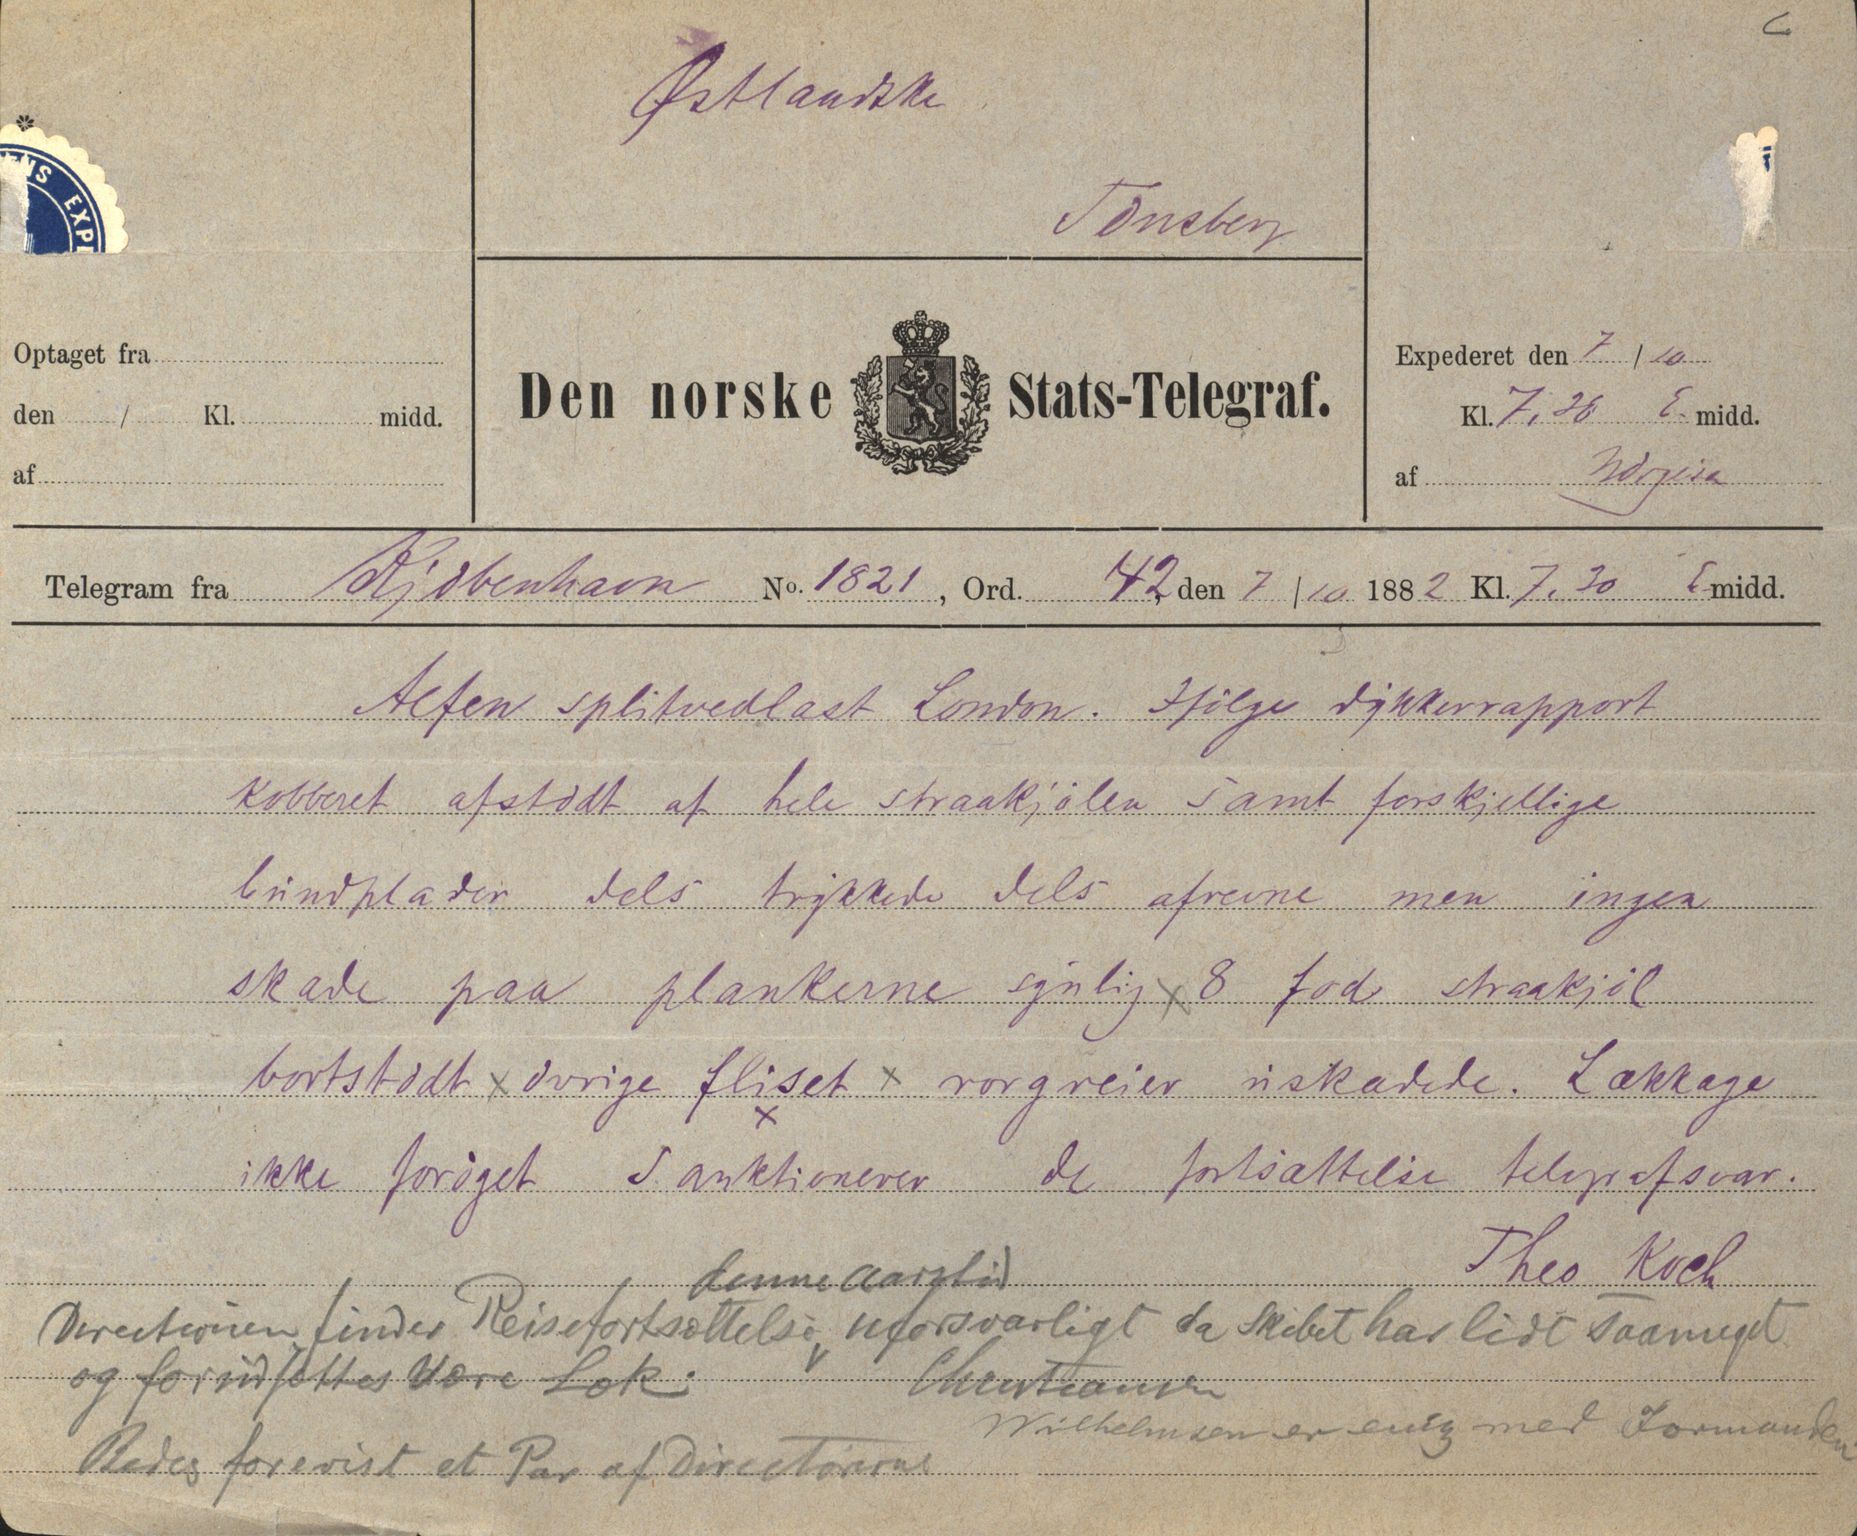 Østlandske
Tönsberg
ENS EXPE
Optaget fra
den / Kl. midd.
af
Den norske Stats-Telegraf.
Expederet den 7 / 10
Kl. 7,36 E midd.
af
Telegram fra Kjöbenhavn No. 1821, Ord. 42, den 7 / 10 1882 Kl. 7,30 E midd.
Alfen splitvedlast London. Ifölge dykkerrapport
kobberet afstödt af hele straakjölen samt forskjellige
bundplader dels trykkede dels afrevne men ingen
skade paa plankerne synlig x 8 fod straakjöl
bortstödt x övrige fliset x rorgreier uskadede. Lækkage
x
ikke foröget Sanktionerer de fortsættelse telegrafsvar.
Theo Koch
denne Aarstid
Directionen finder Reisefortsættelse uforsvarligt da Skibet har lidt saameget
og forudsættes være Læk.
Christiansen
Wilhelmsen er enig med Formanden
Bedes forevist et Par af Directörerne